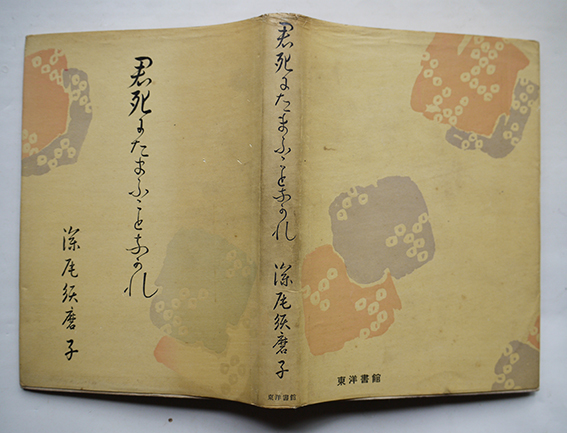 君死にたまふことなかれ
深尾須磨子
君死にたまふことなかれ
深尾須磨子
東洋書館
東洋書館